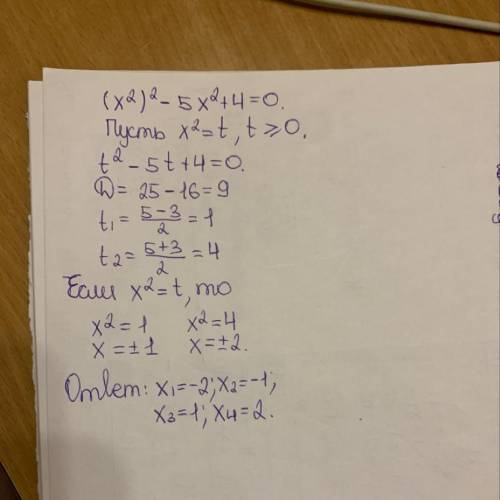 (x²)² - 5x² + 4 = 0.
Пусть x² = t, t ≥ 0.
t² - 5t + 4 = 0.
D = 25 - 16 = 9
t₁ = (5-3)/2 = 1
t₂ = (5+3)/2 = 4
Если x² = t, то
x² = 1 x² = 4
x = ±1 x = ±2.
Ответ: x₁ = -2; x₂ = -1;
x₃ = 1; x₄ = 2.